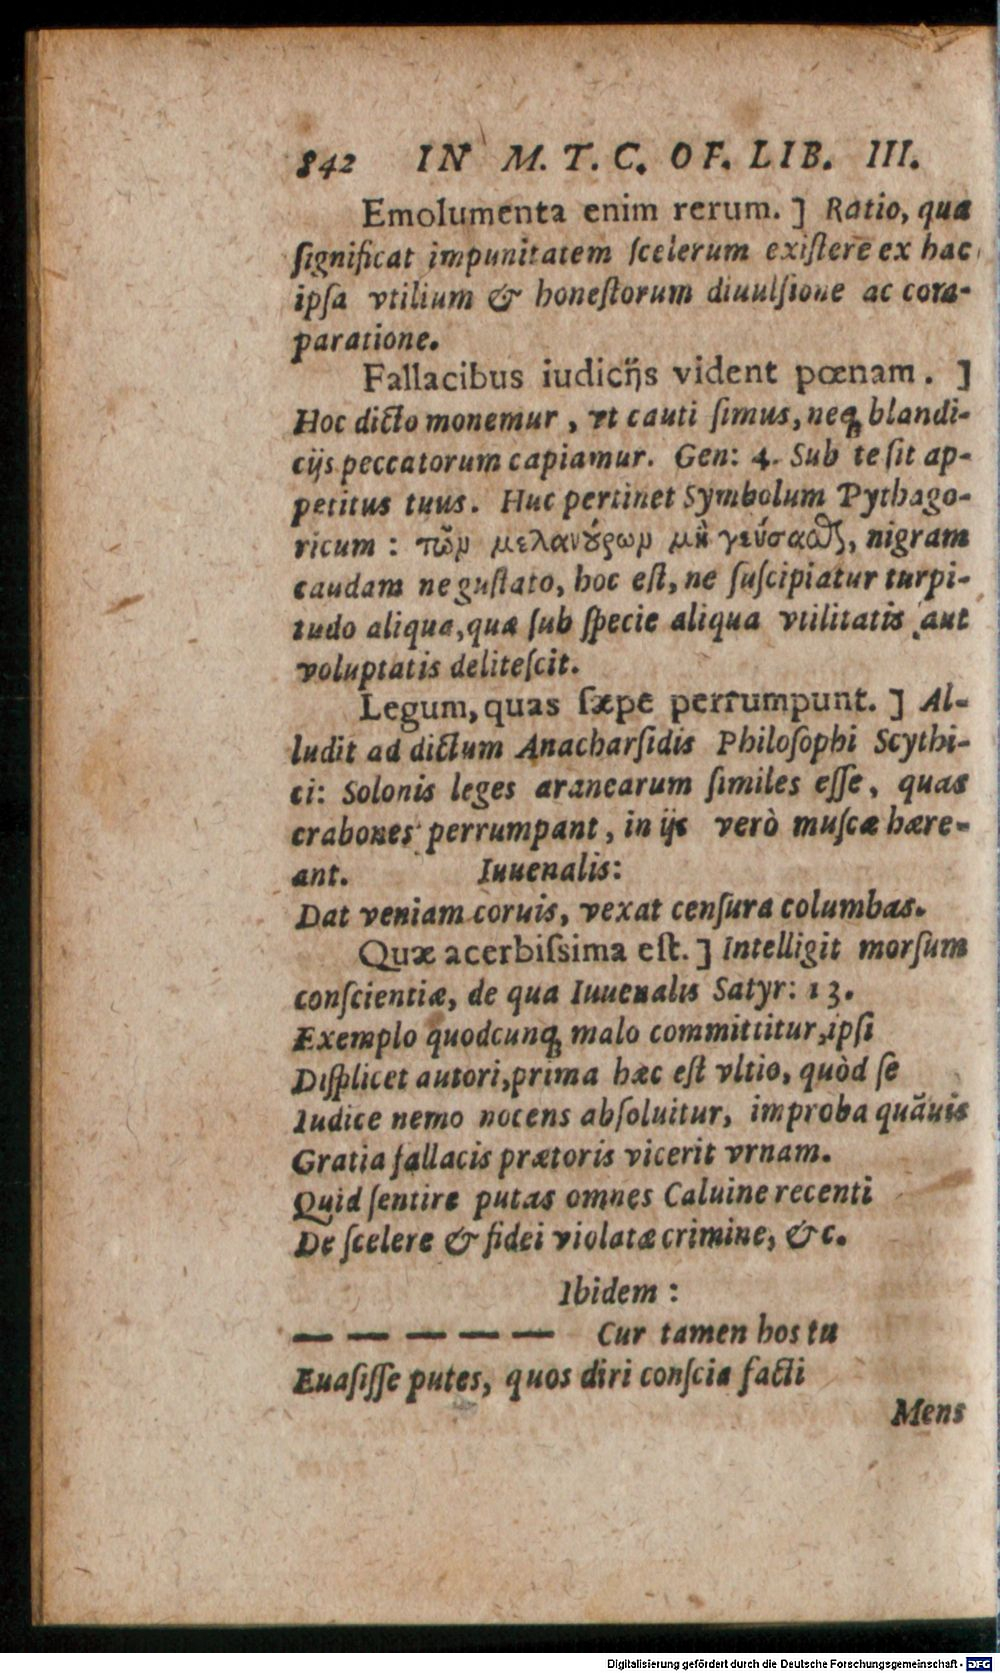 842 IN M. T. C. OF. LIB. III.
Emolumenta enim rerum. ] Ratio, qua
ſignificat impunitatem ſcelerum exiſtere ex hac
ipſa vtilium & honeſtorum diuulſione ac com-
paratione.
Fallacibus iudicijs vident pœnam. ]
Hoc dicto monemur, vt cauti ſimus, neq; blandi-
cijs peccatorum capiamur. Gen: 4. Sub te ſit ap-
petitus tuus. Huc pertinet Symbolum Pythago-
ricum: τῶν μελανȣ́ρων μὴ γεύσαϑζ, nigram
caudam ne guſtato, hoc eſt, ne ſuſcipiatur turpi-
tudo aliqua, quæ ſub ſpecie aliqua vtilitatis aut
voluptatis deliteſcit.
Legum, quas ſæpe perrumpunt. ] Al-
ludit ad dictum Anacharſidis Philoſophi Scythi-
ci: Solonis leges aranearum ſimiles eſſe, quas
crabones perrumpant, in ijs verò muſcæ hære-
ant. Iuuenalis:
Dat veniam coruis, vexat cenſura columbas.
Quæ acerbiſsima eſt. ] Intelligit morſum
conſcientiæ, de qua Iuuenalis Satyr: 13.
Exemplo quodcunq; malo committitur, ipſi
Diſplicet autori, prima hæc eſt vltio, quòd ſe
Iudice nemo nocens abſoluitur, improba quãuis
Gratia fallacis prætoris vicerit vrnam.
Quid ſentire putas omnes Caluine recenti
De ſcelere & fidei violatæ crimine, &c.
Ibidem:
— — — — — Cur tamen hos tu
Euaſiſſe putes, quos diri conſcia facti
Mens
Digitalisierung gefördert durch die Deutsche Forschungsgemeinschaft - DFG